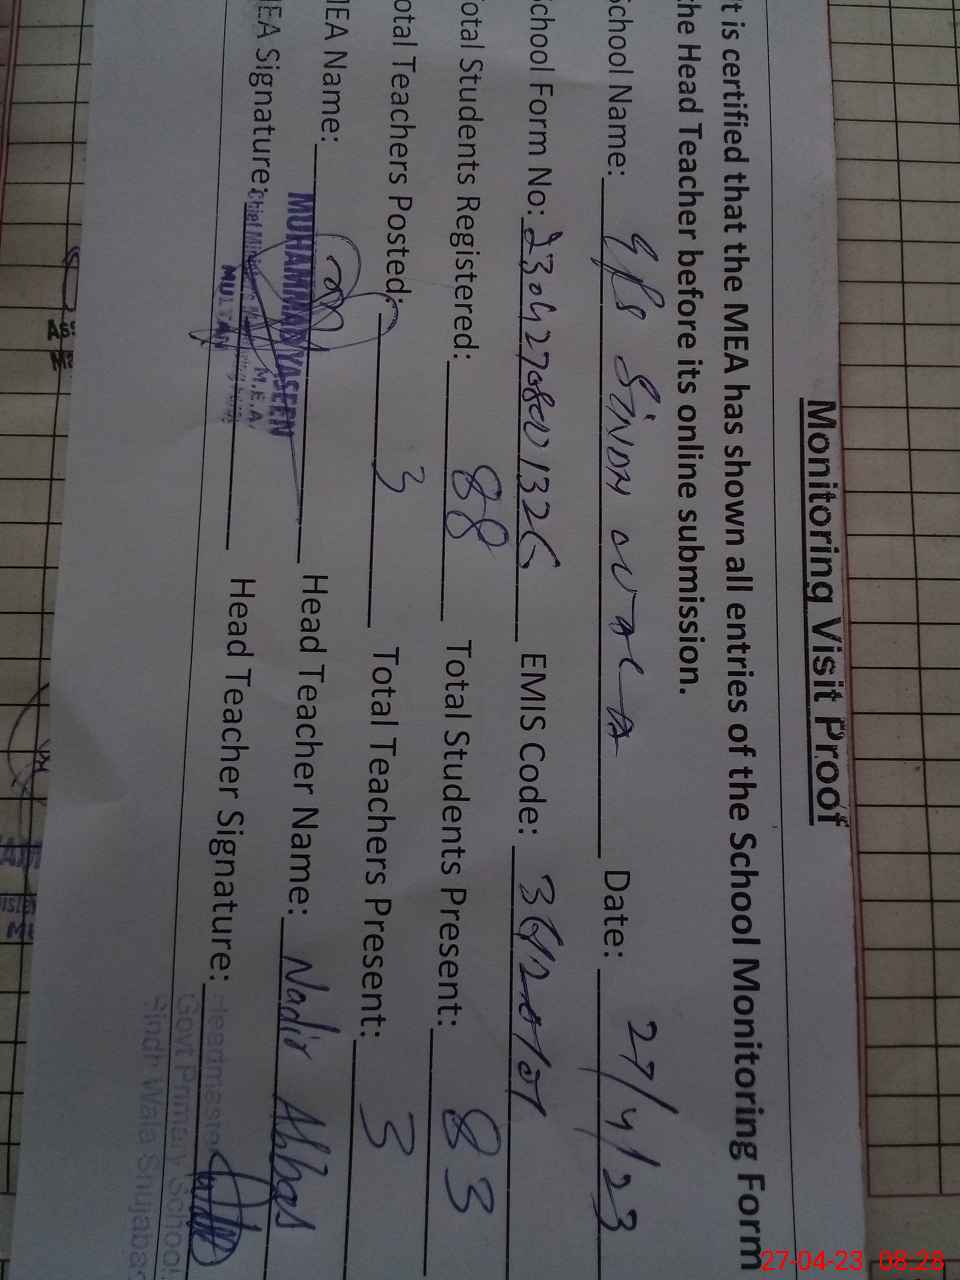 Monitoring Visit Proof
It is certified that the MEA has shown all entries of the School Monitoring Form
the Head Teacher before its online submission.
School Name: GPS SiNDH WALA Date: 27/4/23
School Form No: EMIS Code:
Total Students Registered: 88 Total Students Present: 83
Total Teachers Posted: 3 Total Teachers Present: 3
MEA Name: MUHAMMAD YASEEN Head Teacher Name: Nadir Abbas
M.E.A
MEA Signature: Chief Minister's Monitoring Force Head Teacher Signature: Headmaster
MULTAN
Govt Primary School
Sindh Wala Shujabad
27-04-23 08:28